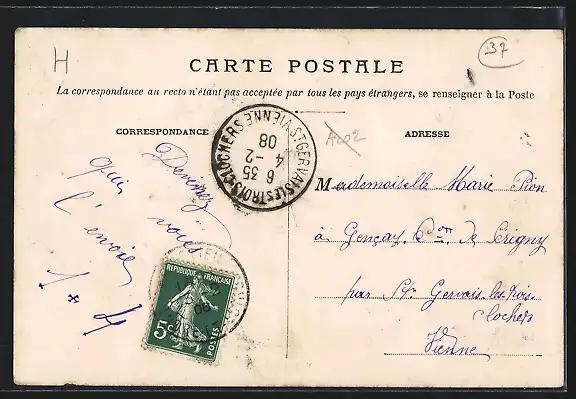 H
37
CARTE POSTALE
La correspondance au recto n'étant pas acceptée par tous les pays étrangers, se renseigner à la Poste
A202
CORRESPONDANCE
ADRESSE
ST GERVAIS LES TROIS CLOCHERS VIENNE
6 35
4 - 2
08
Devinez
vous
qui
l'envoie
Mademoiselle Marie Pion
à Gençay, Con de Lerigny
par St Gervais-les-trois-
clochers
Vienne
REPUBLIQUE FRANÇAISE
5c
POSTES
08